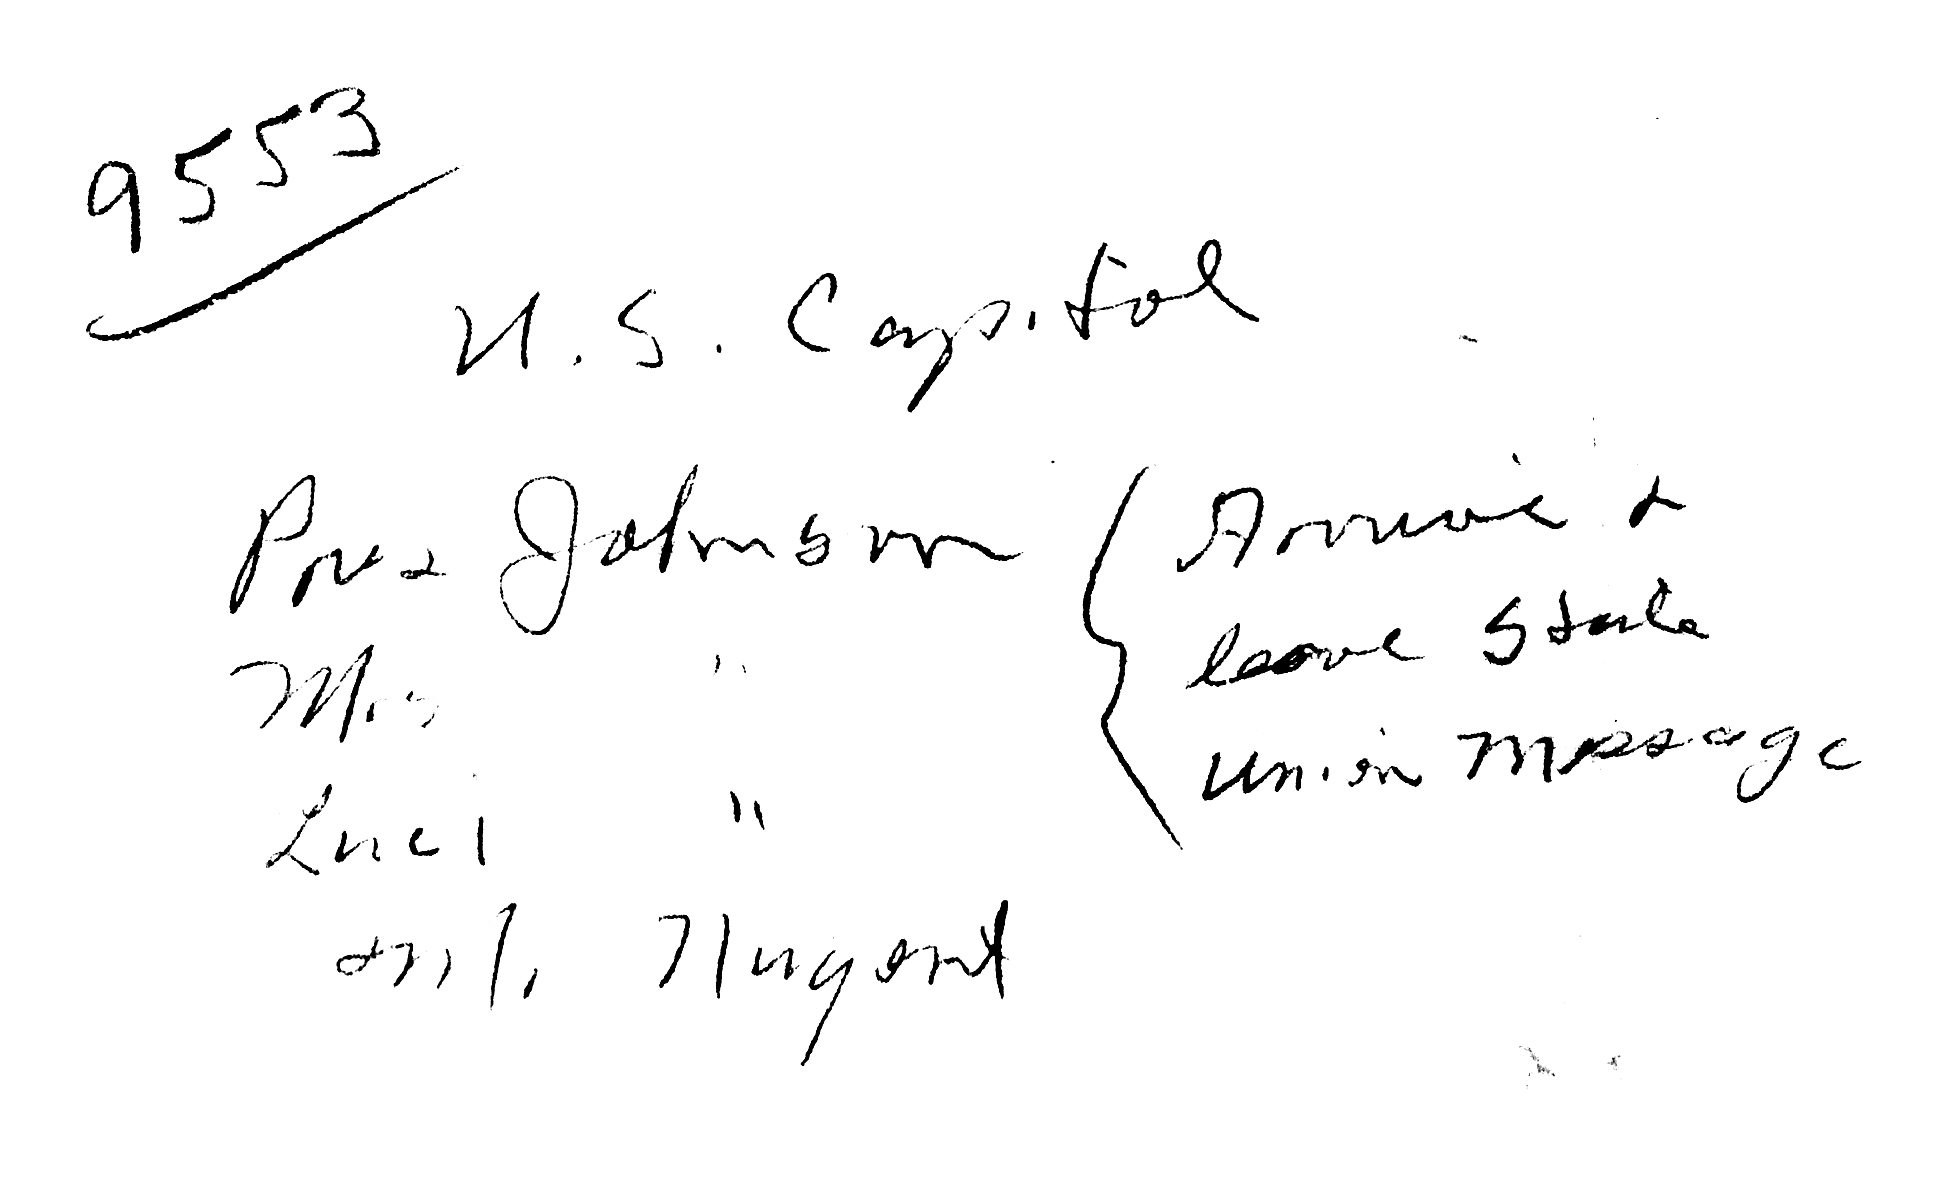 9553
U.S. Capitol
Pres Johnson
Mrs "
Luci "
+ Mr. Nugent
Arrive +
leave State
Union Message